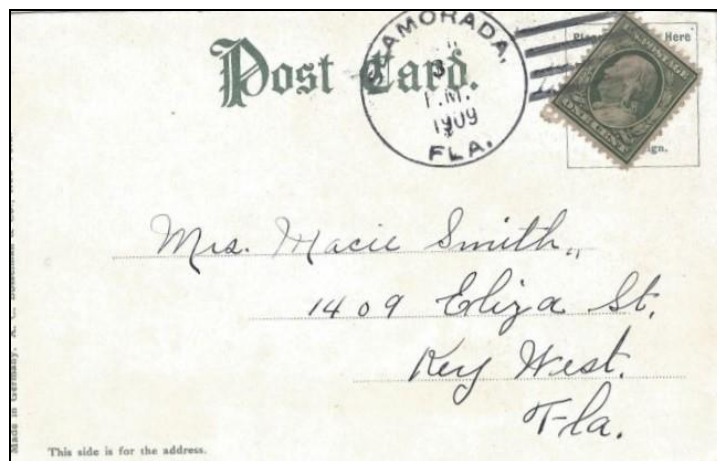 Post Card.
ISLAMORADA,
P.M.
1909
FLA.
Here
POSTAGE
ONE CENT
Mrs. Macie Smith,,
1409 Eliza St.
Key West.
Fla.
Made in Germany.
This side is for the address.